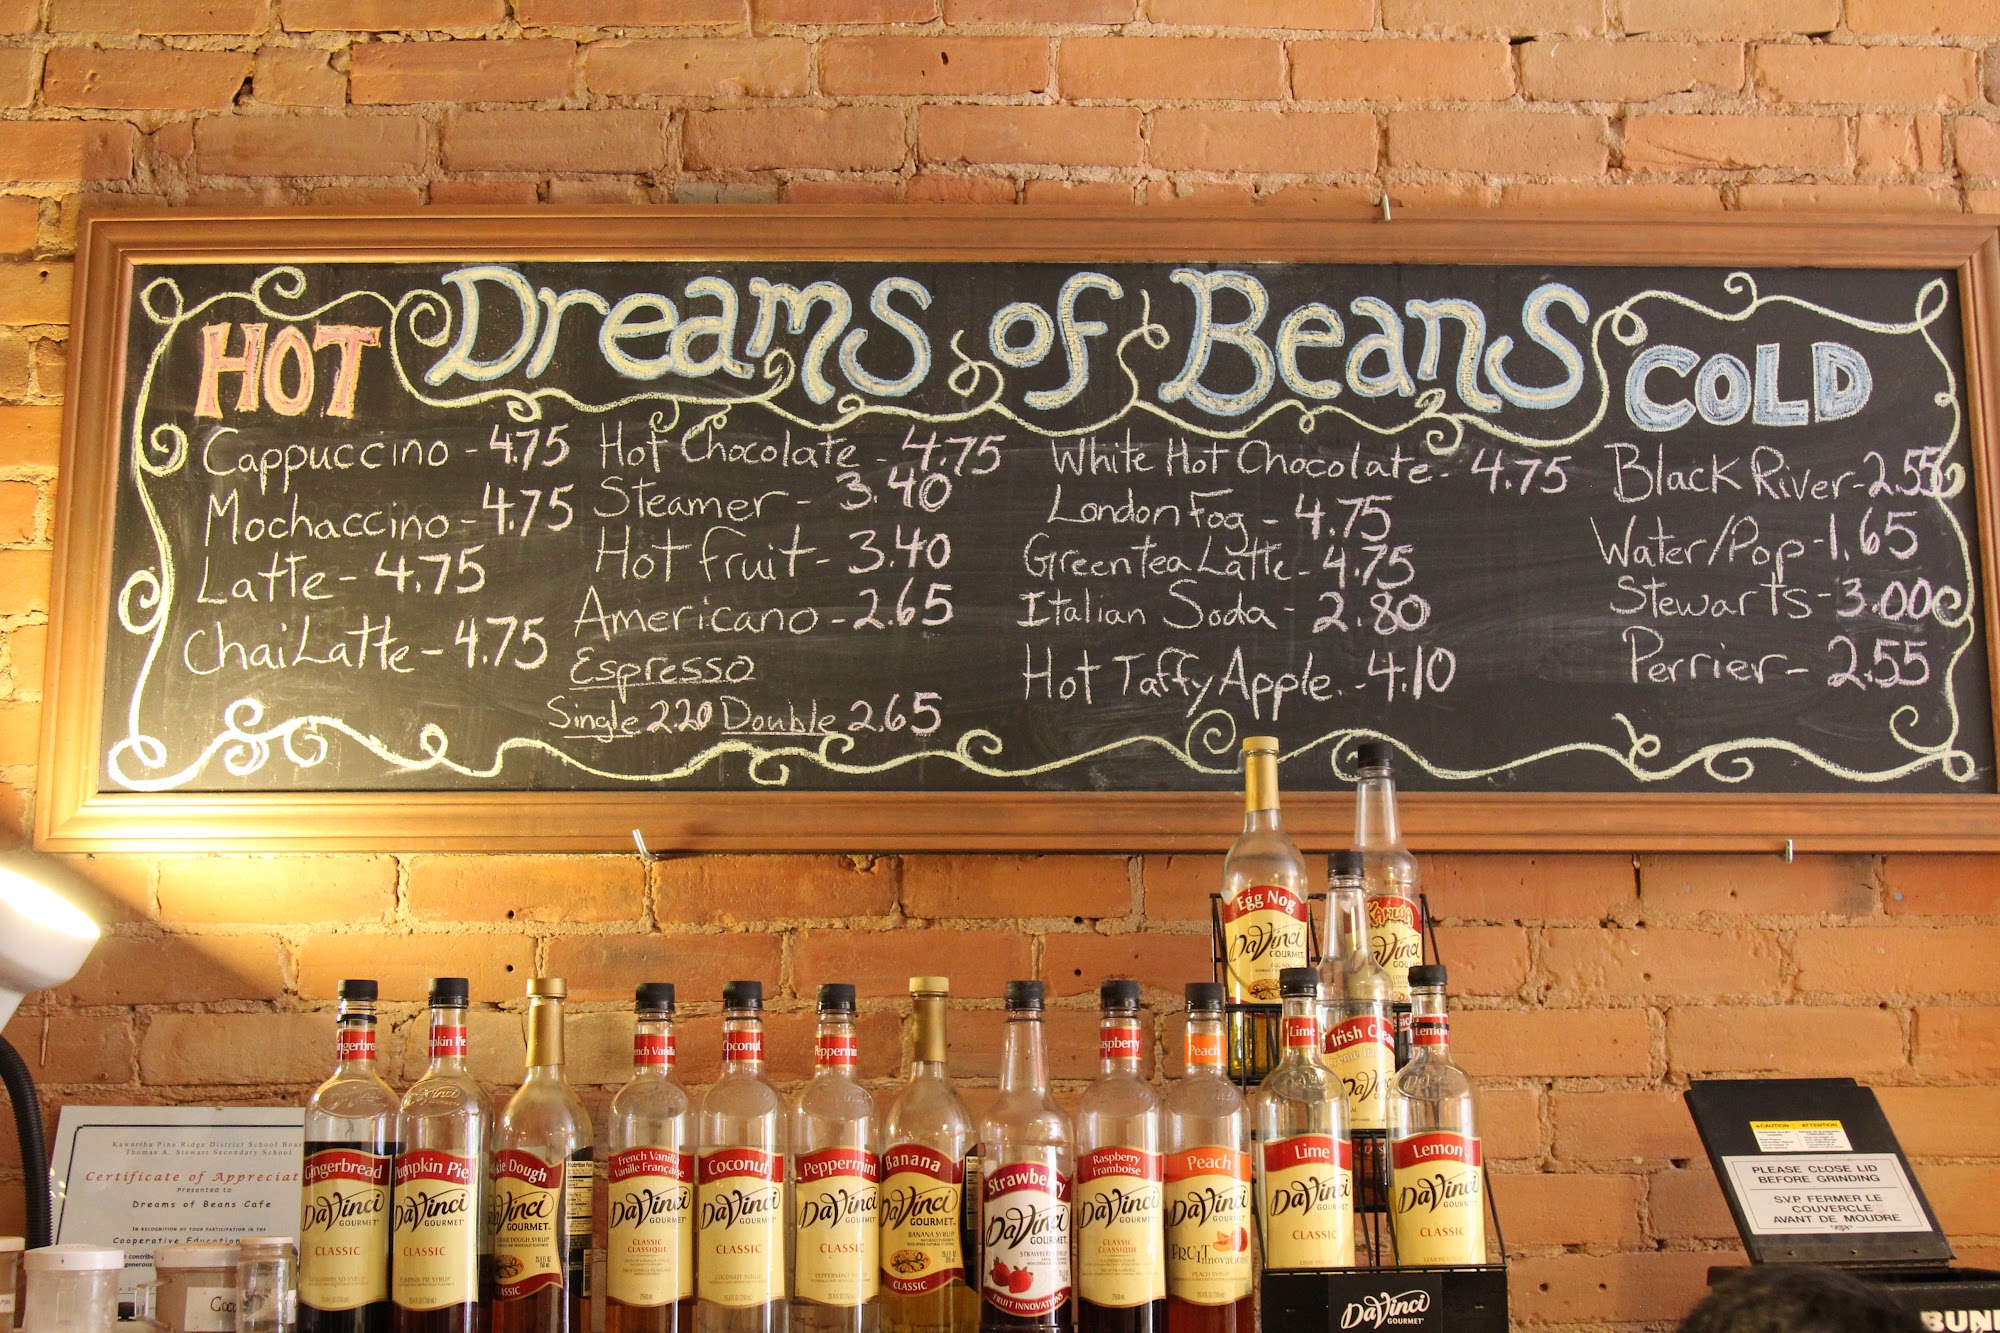 Dreams of Beans
HOT
Cappuccino - 4.75
Mochaccino - 4.75
Latte - 4.75
Chai Latte - 4.75
Hot Chocolate - 4.75
Steamer - 3.40
Hot fruit - 3.40
Americano - 2.65
Espresso
Single 2.20 Double 2.65
White Hot Chocolate - 4.75
London Fog - 4.75
Green tea Latte - 4.75
Italian Soda - 2.80
Hot Taffy Apple. - 4.10
COLD
Black River - 2.55
Water/Pop - 1.65
Stewarts - 3.00
Perrier - 2.55
Egg Nog
DaVinci
GOURMET
KAHLUA
DaVinci
GOURMET
Irish Cream
DaVinci
Gingerbread
DaVinci
GOURMET
CLASSIC
Pumpkin Pie
DaVinci
GOURMET
CLASSIC
kie Dough
DaVinci
GOURMET
CLASSIC
French Vanilla
Vanille Française
DaVinci
GOURMET
CLASSIC
CLASSIQUE
Coconut
Coconut
DaVinci
GOURMET
CLASSIC
COCONUT SYRUP
Peppermint
Peppermint
DaVinci
GOURMET
CLASSIC
PEPPERMINT SYRUP
Banana
DaVinci
GOURMET
BANANA SYRUP
CLASSIC
Strawberry
DaVinci
GOURMET
FRUIT INNOVATIONS
Raspberry
Raspberry
Framboise
DaVinci
GOURMET
CLASSIC
CLASSIQUE
Peach
Peach
DaVinci
GOURMET
FRUIT Innovations
PEACH SYRUP
Lime
Lime
DaVinci
GOURMET
CLASSIC
Lemon
Lemon
DaVinci
GOURMET
CLASSIC
DaVinci
GOURMET
Kawartha Pine Ridge District School Boar
Thomas A. Stewart Secondary School
Certificate of Appreciat
Presented to
Dreams of Beans Cafe
IN RECOGNITION OF YOUR PARTICIPATION IN THE
Cooperative Education
Coco
CAUTION ATTENTION
PLEASE CLOSE LID
BEFORE GRINDING
S.V.P. FERMER LE
COUVERCLE
AVANT DE MOUDRE
BUNN